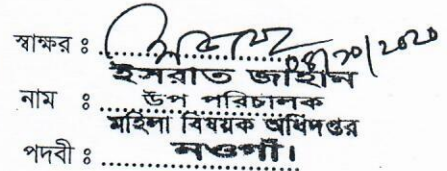 স্বাক্ষর ঃ ........................ 08/10/2020
ইসরাত জাহান
নাম ঃ উপ পরিচালক
মহিলা বিষয়ক অধিদপ্তর
পদবী ঃ ........ নওগাঁ।